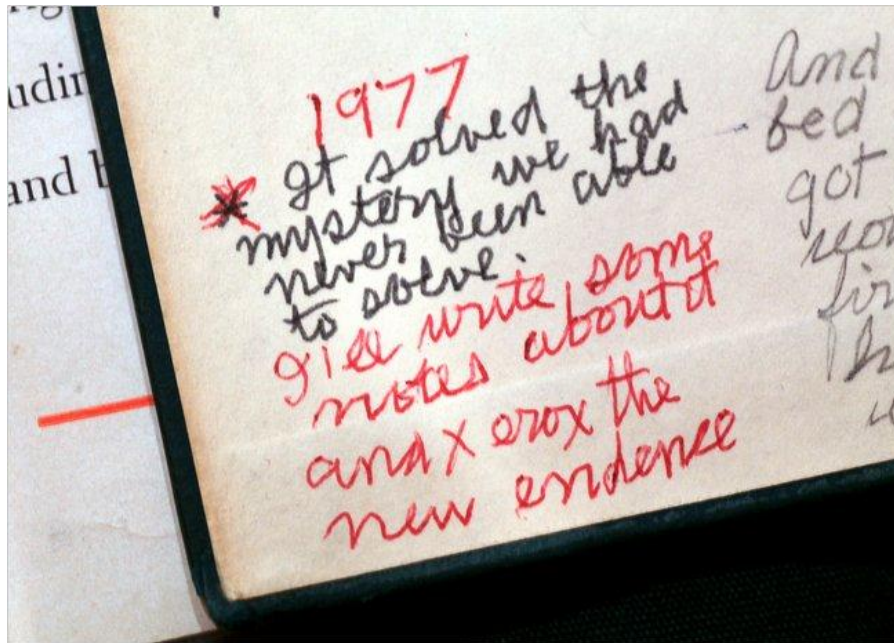 udin
and b
1977
* It solved the
mystery we had
never been able
to solve.
I'll write some
notes about it
and xerox the
new endence
And
bed
got
fir